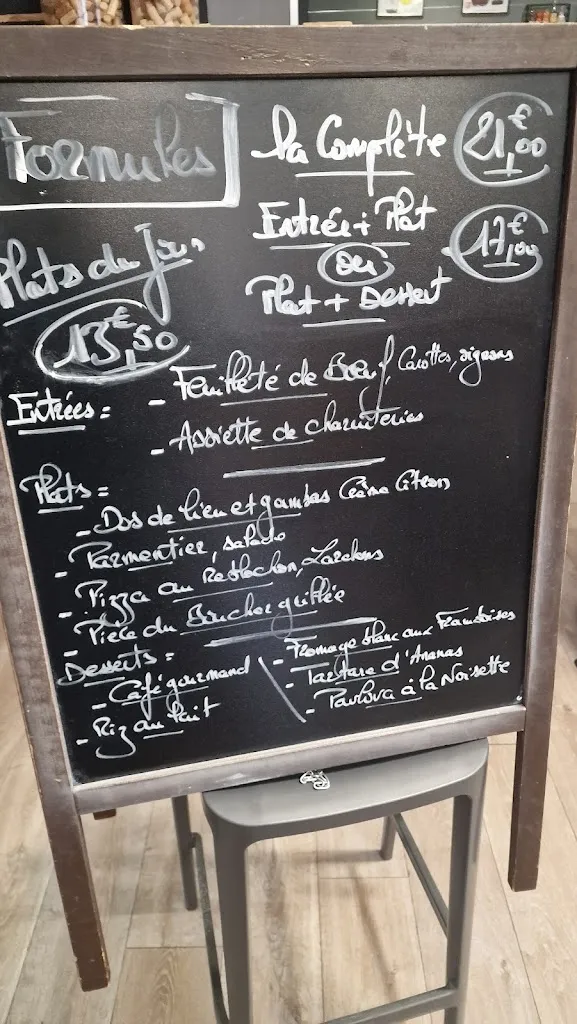 Formules
la Complète 21,00 €
Entrée + Plat
ou
Plat + Dessert
17,00 €
Plats du Jour
13,50 €
Entrées =
- Feuilleté de Boeuf, Carottes, oignons
- Assiette de charcuteries
Plats =
- Dos de lieu et gambas Crème Citron
- Parmentier, salade
- Pizza au Reblochon, Lardons
- Pièce du Boucher grillée
Desserts =
- Café gourmand
- Riz au lait
- Fromage blanc aux Framboises
- Tartare d'Ananas
- Pavlova à la Noisette